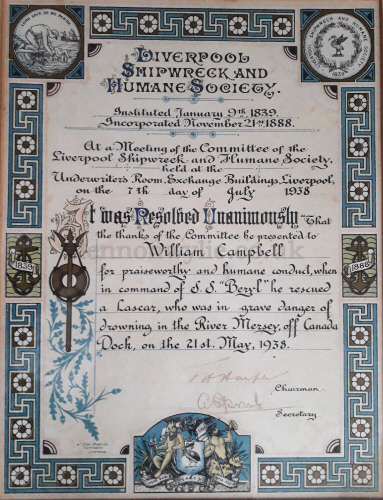 LIVERPOOL
SHIPWRECK AND
HUMANE SOCIETY.
Instituted January 9th 1839.
Incorporated November 21st 1888.
At a Meeting of the Committee of the
Liverpool Shipwreck and Humane Society,
held at the
Underwriter's Room, Exchange Buildings, Liverpool,
on the 7th day of July 1938
It was Resolved Unanimously That
the thanks of the Committee be presented to
William Campbell
for praiseworthy and humane conduct, when
in command of S.S. "Beryl" he rescued
a Lascar, who was in grave danger of
drowning in the River Mersey, off Canada
Dock, on the 21st. May, 1938.
1839
1888
Chairman.
Secretary